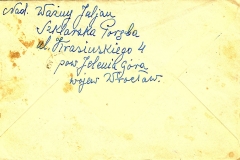 Nad. Ważny Juljan
Szklarska Poręba
ul. Krasińskiego 4
pow Jelenia Góra
wojew Wrocław.